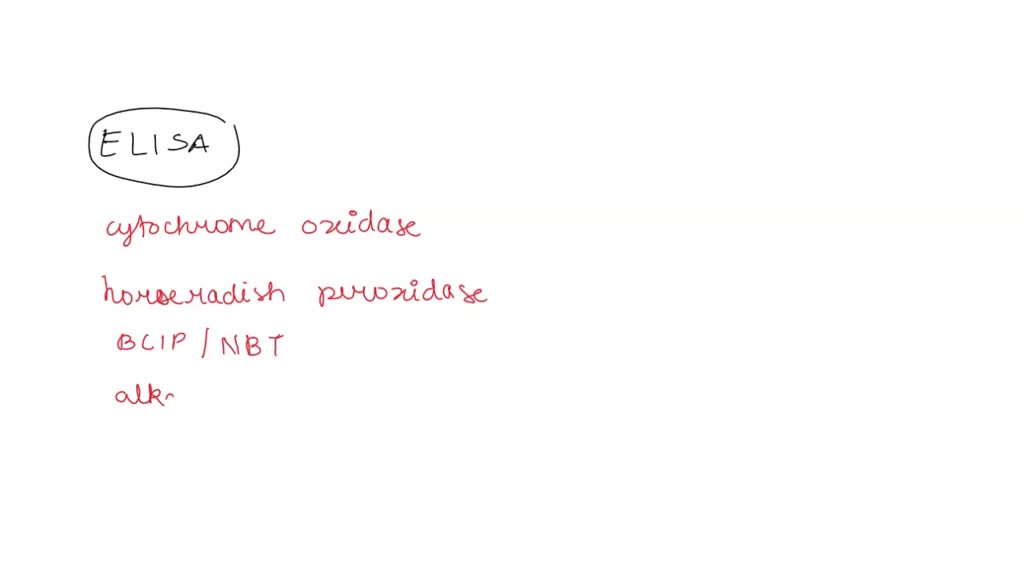 ELISA
cytochrome oxidase
horseradish peroxidase
BCIP / NBT
alk